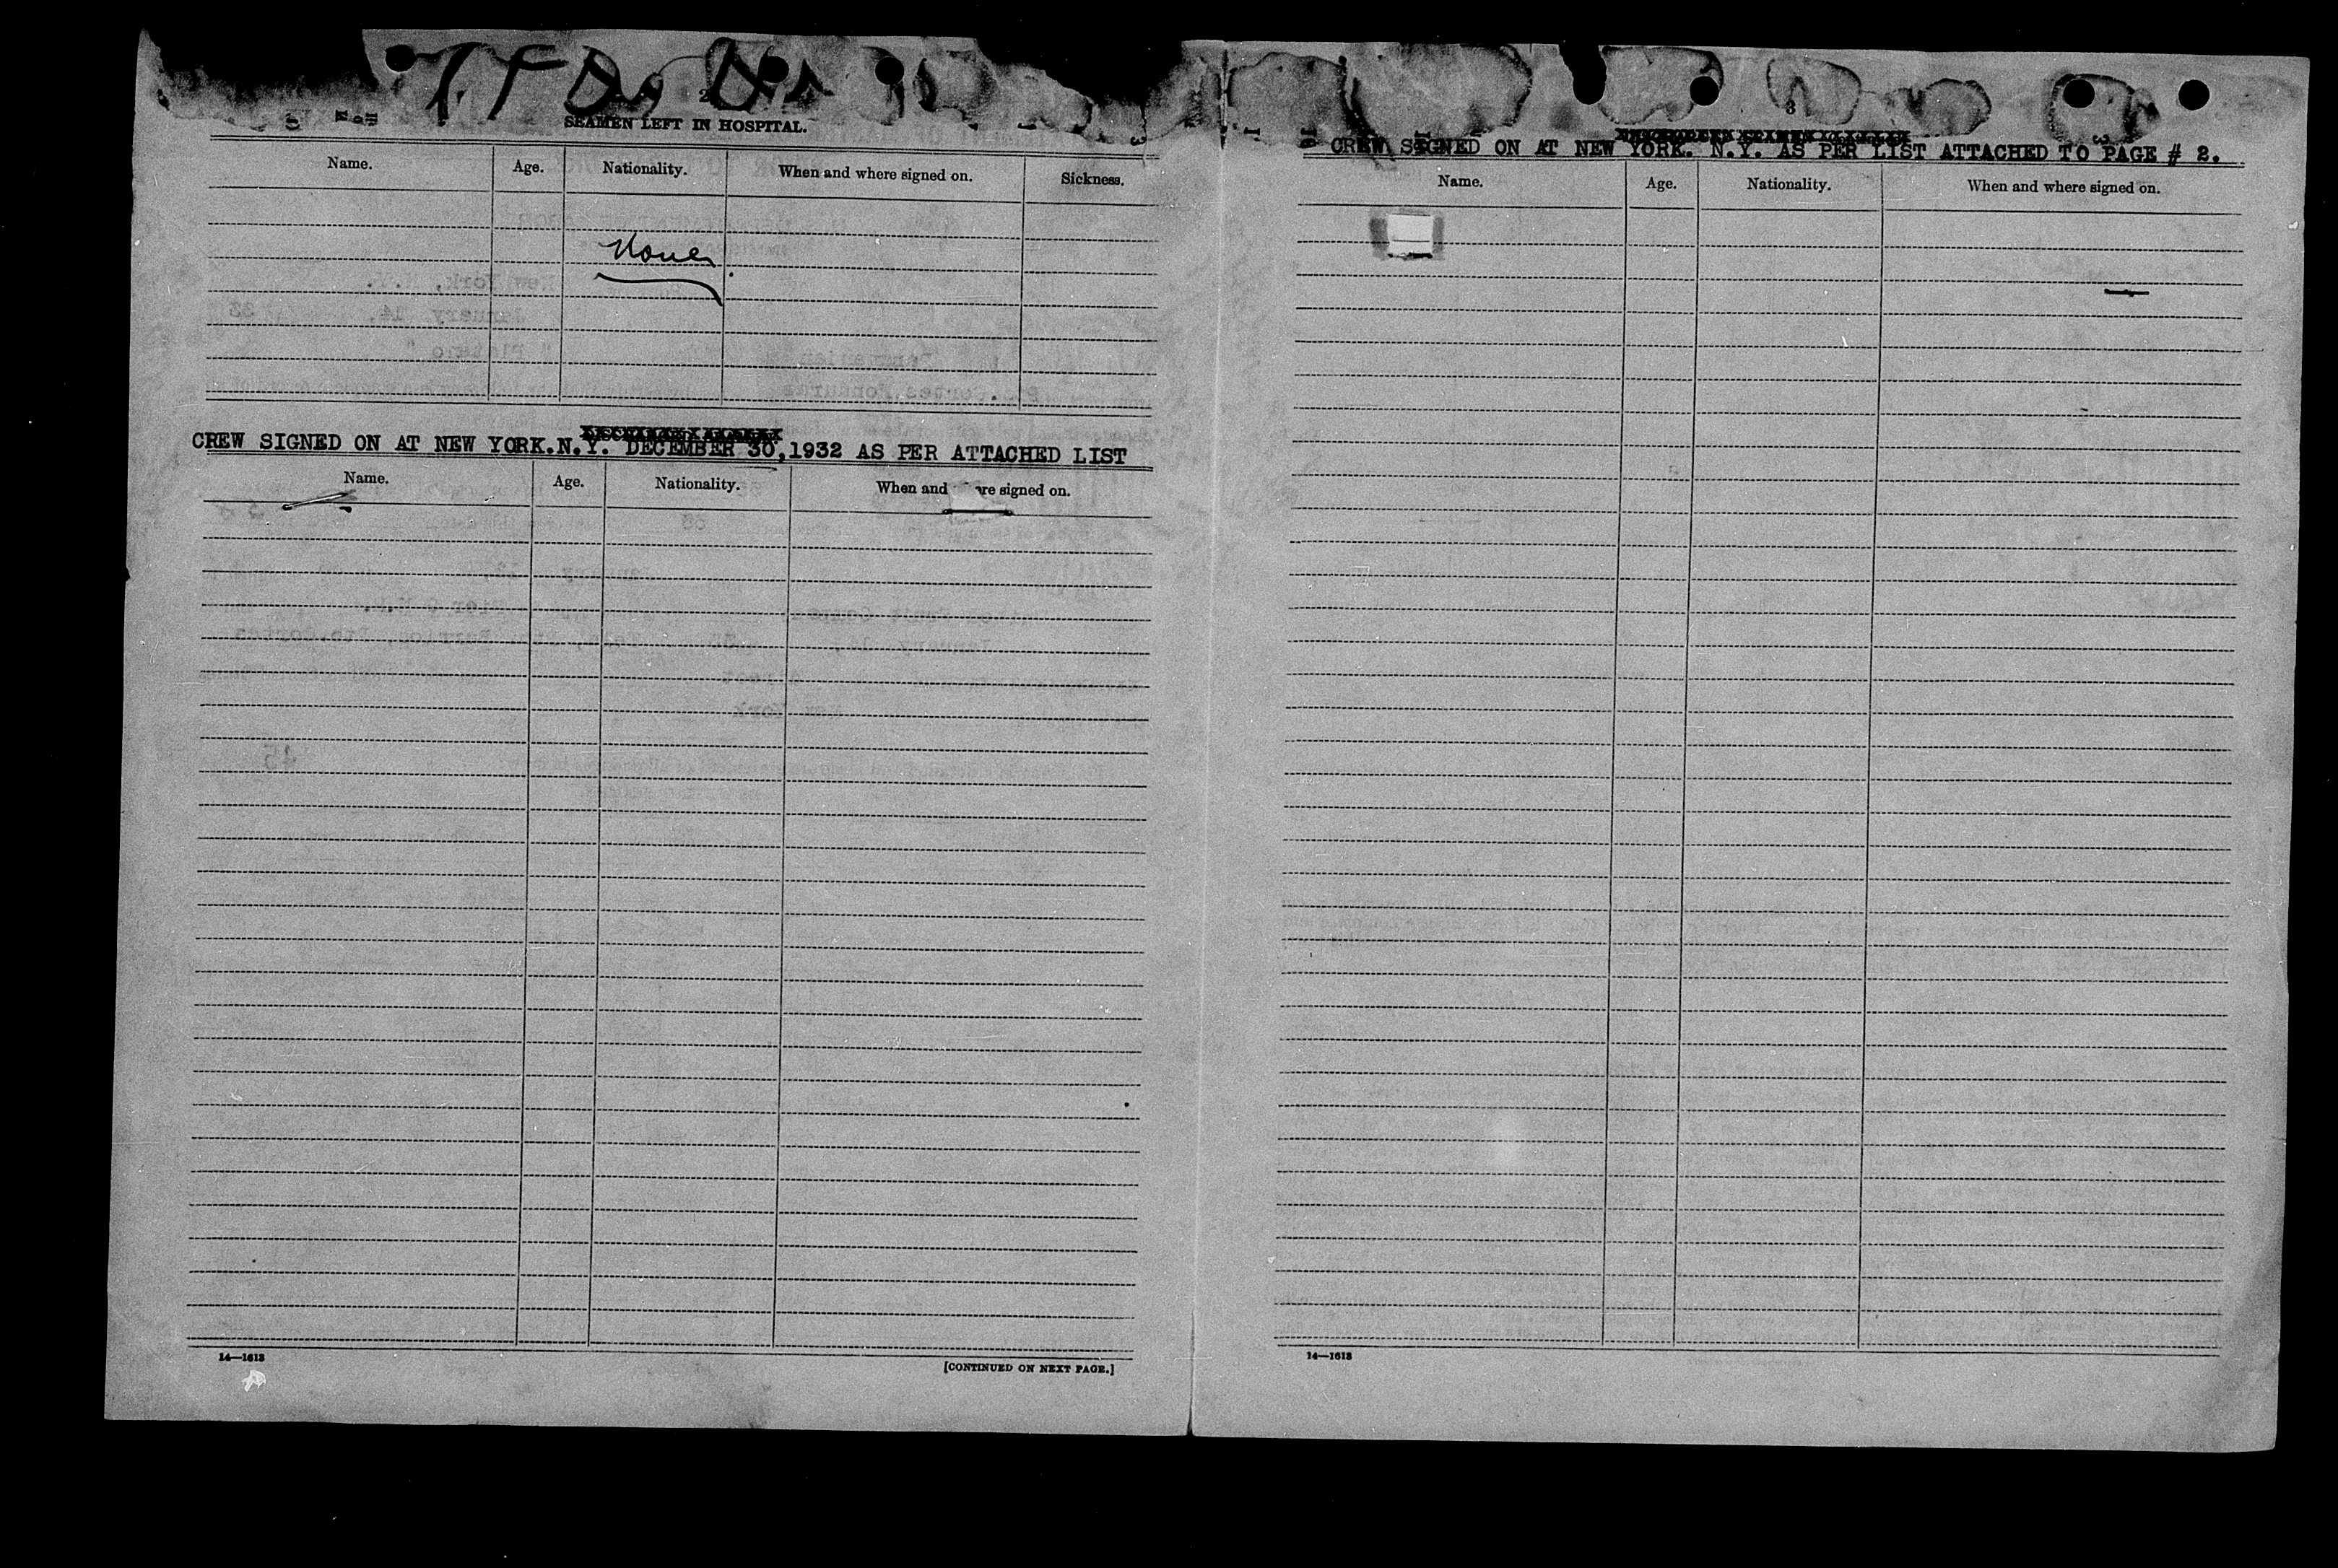 2
SEAMEN LEFT IN HOSPITAL.
Name. Age. Nationality. When and where signed on. Sickness.
None
CREW SIGNED ON AT NEW YORK.N.Y. DECEMBER 30,1932 AS PER ATTACHED LIST
Name. Age. Nationality. When and signed on.
14—1613
[CONTINUED ON NEXT PAGE.]
3
CREW SIGNED ON AT NEW YORK. N.Y. AS PER LIST ATTACHED TO PAGE # 2.
Name. Age. Nationality. When and where signed on.
14—1613